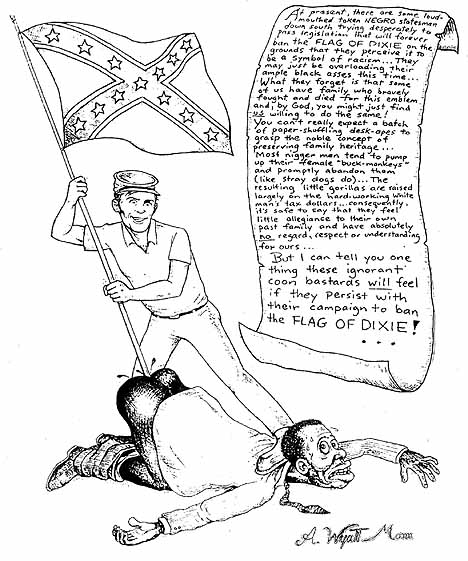 At present, there are some loud-
mouthed token NEGRO statesmen
down south trying desperately to
pass legislation that will forever
ban the FLAG OF DIXIE on the
grounds that they perceive it to
be a symbol of racism... They
may just be overloading their
ample black asses this time...
What they forget is that some
of us have family who bravely
fought and died for this emblem
and, by God, you might just find
us willing to do the same!
You can't really expect a batch
of paper-shuffling desk-apes to
grasp the noble concept of
preserving family heritage...
Most nigger men tend to pump
up their female "buck-monkeys"
and promptly abandon them
(like stray dogs do)... The
resulting little gorillas are raised
largely on the hard-working white
man's tax dollars... consequently,
it's safe to say that they feel
little allegiance to their own
past family and have absolutely
no regard, respect or understanding
for ours...
But I can tell you one
thing these ignorant
coon bastards will feel
if they persist with
their campaign to ban
the FLAG OF DIXIE!
...
A. Wyatt Mann